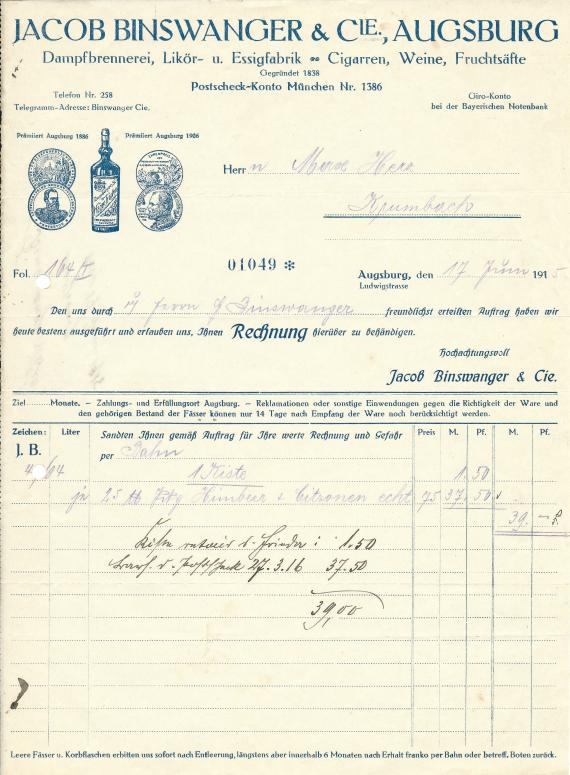 JACOB BINSWANGER & CIE., AUGSBURG
Dampfbrennerei, Likör- u. Essigfabrik ∞ Cigarren, Weine, Fruchtsäfte
Gegründet 1838
Postscheck-Konto München Nr. 1386
Telefon Nr. 258
Telegramm-Adresse: Binswanger Cie.
Giro-Konto
bei der Bayerischen Notenbank
Prämiiert Augsburg 1886
Prämiiert Augsburg 1906
Herrn Herz
Krumbach
Fol. 164/II
01049 *
Augsburg, den 17 Juni 1915
Ludwigstrasse
Den uns durch Herrn Binswanger freundlichst erteilten Auftrag haben wir
heute bestens ausgeführt und erlauben uns, Ihnen Rechnung hierüber zu behändigen.
Hochachtungsvoll
Jacob Binswanger & Cie.
Ziel Monate. – Zahlungs- und Erfüllungsort Augsburg. – Reklamationen oder sonstige Einwendungen gegen die Richtigkeit der Ware und
den gehörigen Bestand der Fässer können nur 14 Tage nach Empfang der Ware noch berücksichtigt werden.
Zeichen: Liter Sandten Ihnen gemäß Auftrag für Ihre werte Rechnung und Gefahr Preis M. Pf. M. Pf.
J. B. per Bahn
1 Kiste 1.50
je 25 Himbeer & Citronen echt 75 37.50
39.–
Kiste retour d. : 1.50
d. Postscheck 27.3.16 37.50
39,00
Leere Fässer u. Korbflaschen erbitten uns sofort nach Entleerung, längstens aber innerhalb 6 Monaten nach Erhalt franko per Bahn oder betreff. Boten zurück.